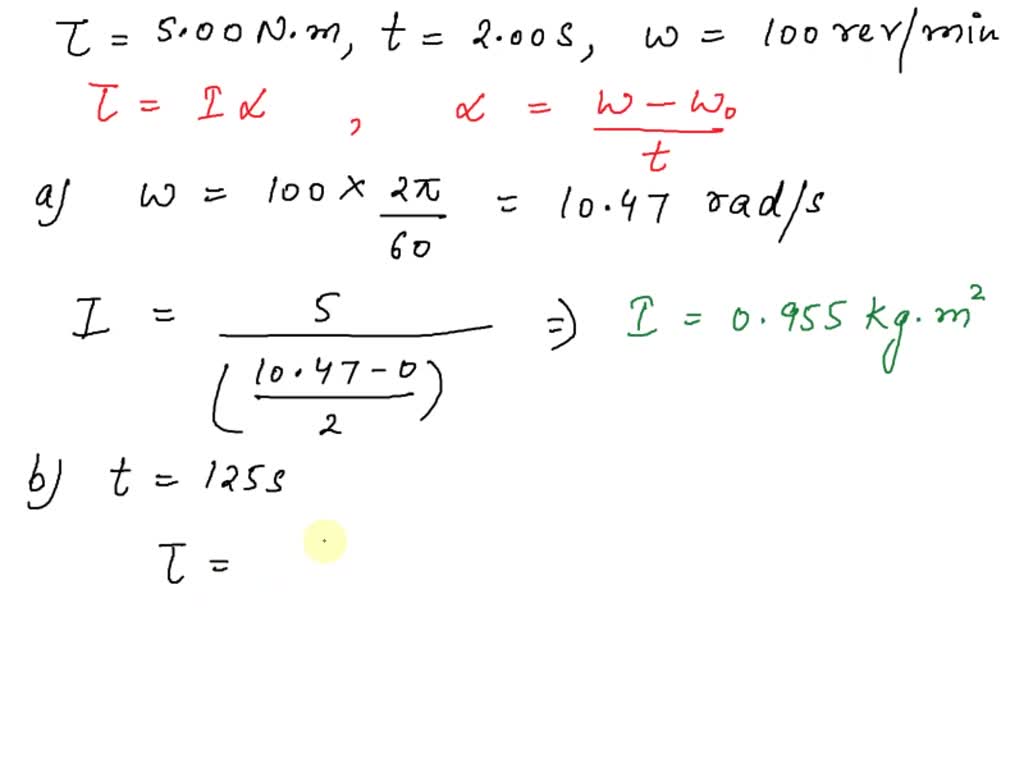 τ = 5.00 N.m, t = 2.00 s, ω = 100 rev/min
τ = I α , α = (ω − ω₀)/t
a) ω = 100 × 2π/60 = 10.47 rad/s
I = 5/((10.47 − 0)/2) ⇒ I = 0.955 kg.m²
b) t = 125 s
τ =